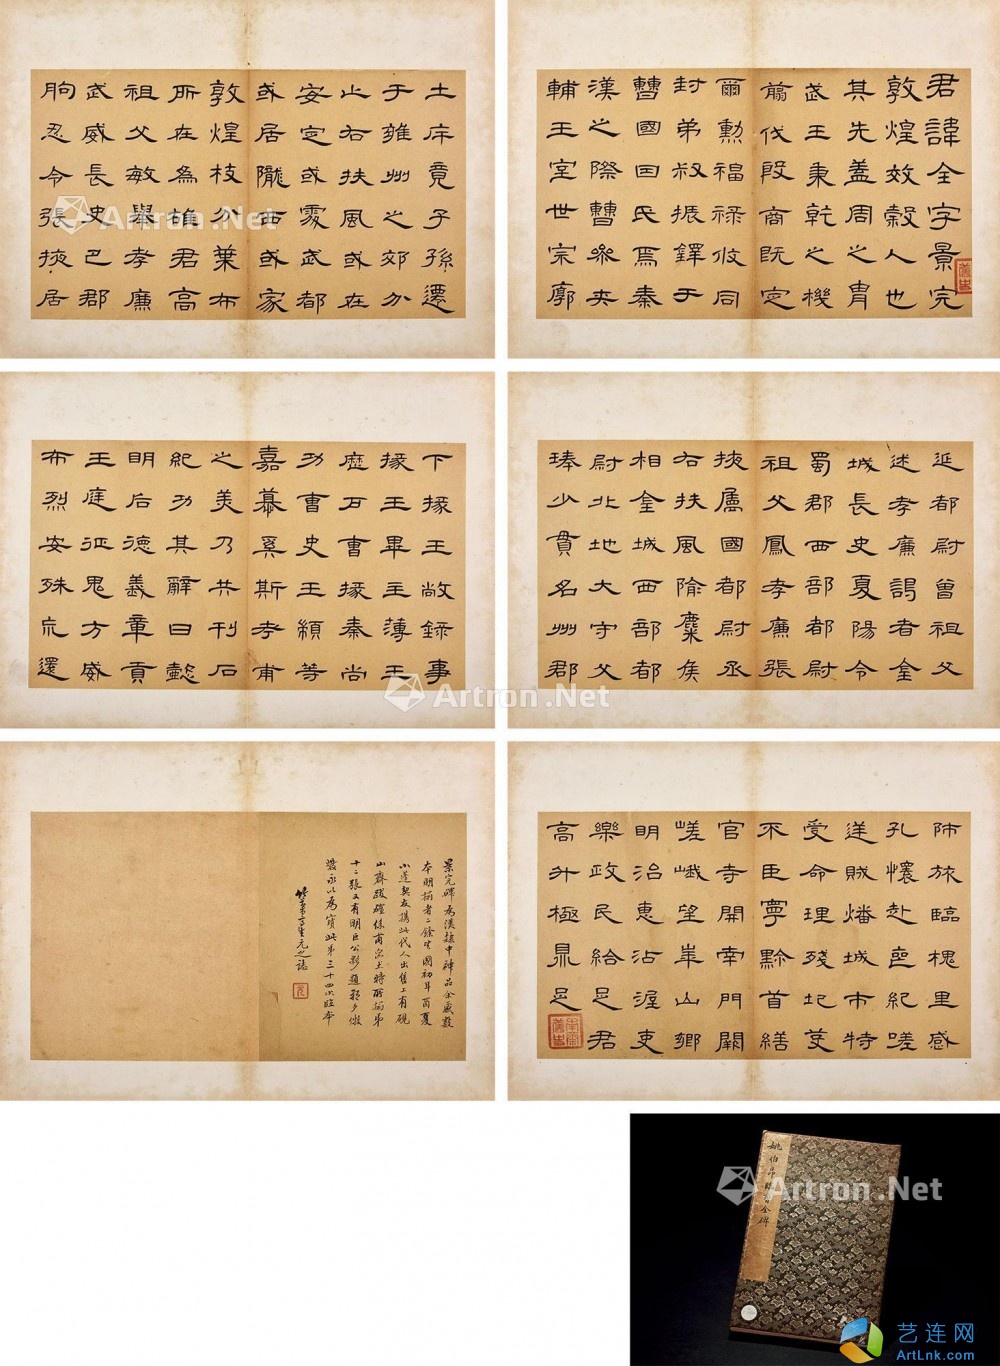 君諱全字景完
敦煌效穀人也
其先蓋周之胄
武王秉乾之機
翦伐殷商既定
爾勳福祿攸同
封弟叔振鐸于
曹國因氏焉秦
漢之際曹參夾
輔王室世宗廓
土斥竟子孫遷
于雍州之郊分
止右扶風或在
安定或處武都
或居隴西或家
敦煌枝分葉布
所在為雄君高
祖父敏舉孝廉
武威長史巴郡
朐忍令張掖居
延都尉曾祖父
述孝廉謁者金
城長史夏陽令
蜀郡西部都尉
祖父鳳孝廉張
掖屬國都尉丞
右扶風隃麋侯
相金城西部都
尉北地大守父
琫少貫名州郡
下掾王敞錄事
掾王畢主薄王
歷戶曹掾秦尚
功曹史王顓等
嘉慕奚斯考甫
之美乃共刊石
紀功其辭曰懿
明后德義章貢
王庭征鬼方威
布烈安殊巟還
師旅臨槐里感
孔懷赴喪紀嗟
逆賊燔城市特
受命理殘圮芟
不臣寧黔首繕
官寺開南門闕
嵯峨望華山鄉
明治惠沾渥吏
樂政民給足君
高升極鼎足
景完碑為漢隸中神品余藏數
本明搨者二餘皆國初耳夏
小蓮契友攜此代人出售上有硯
山齋跋確係甫出土時所搨弟
十二張又有明臣公題
裝永以為寶此第三十四次臨本
竹葉亭生元之誌
姚伯昂臨全碑
Artron.Net
Artron.Net
Artron.Net
Artron.Net
艺连网
ArtLnk.com